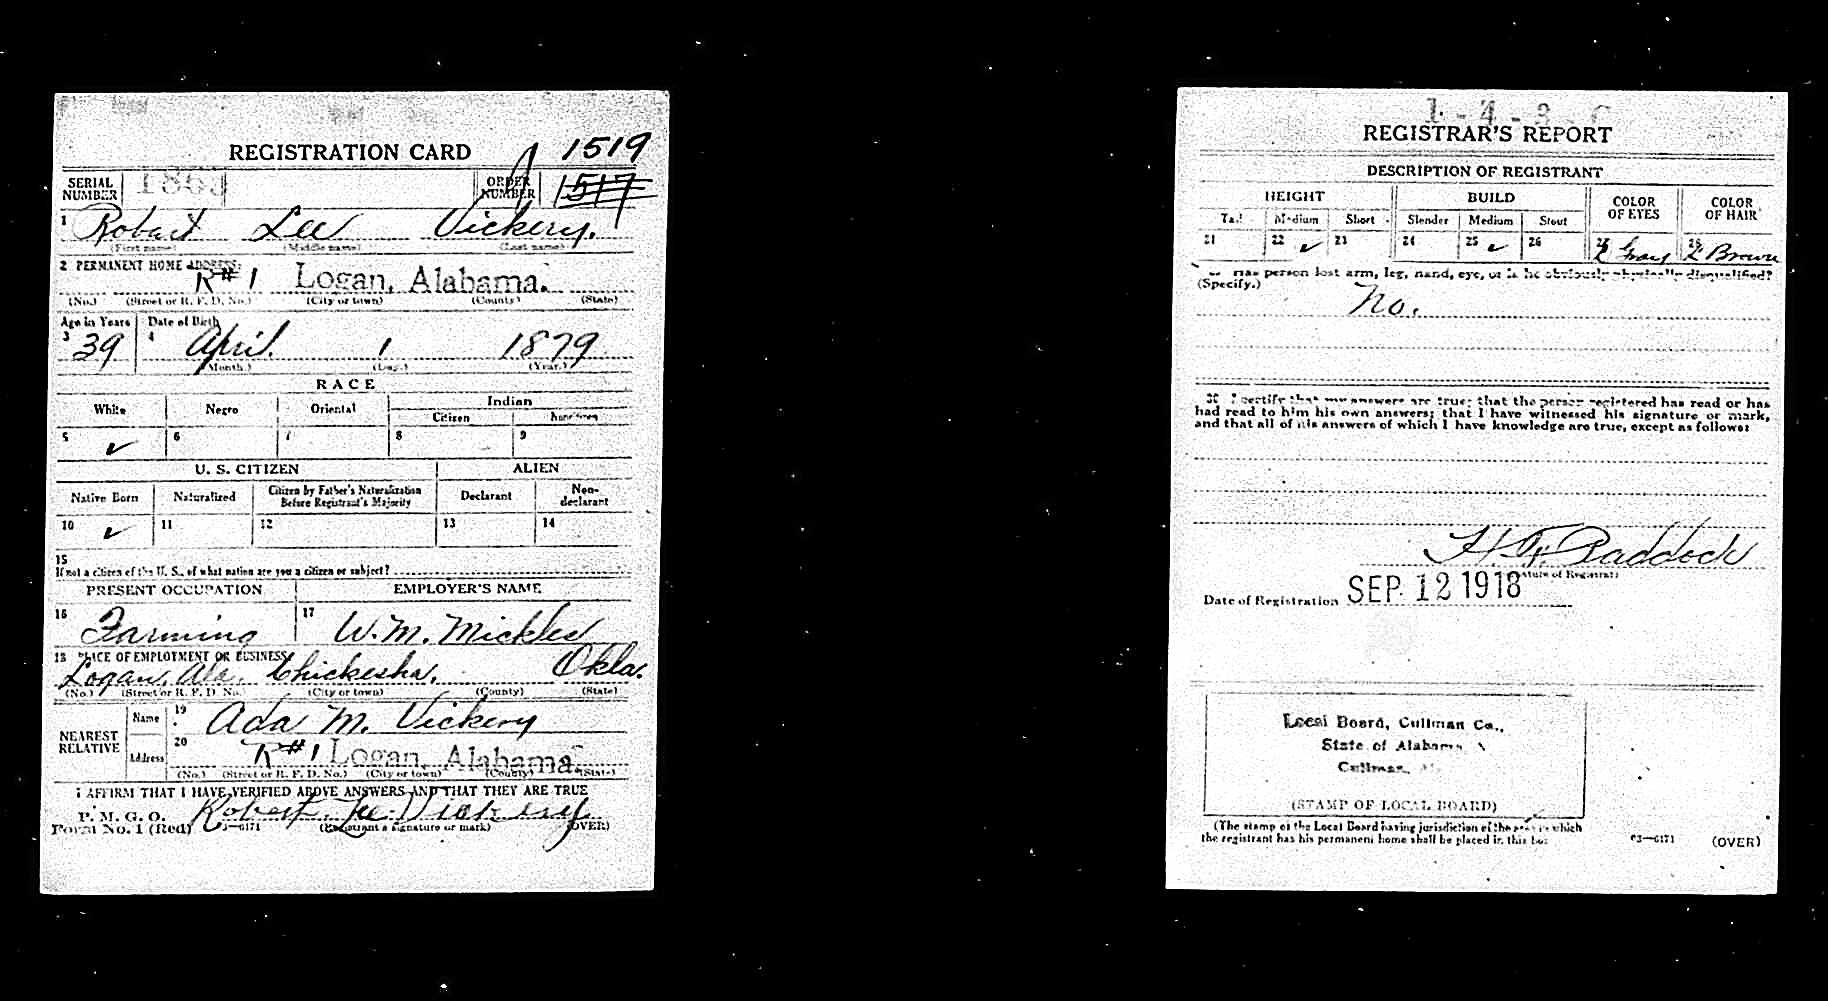 REGISTRATION CARD 1519
SERIAL NUMBER ORDER NUMBER 1517
1 Robert Lee Vickery.
(First name) (Middle name) (Last name)
2 PERMANENT HOME ADDRESS:
R#1 Logan, Alabama.
(No.) (Street or R. F. D. No.) (City or town) (County) (State)
Age in Years Date of Birth
3 39 4 April 1 1879
(Month.) (Day.) (Year.)
RACE
White Negro Oriental Indian
Citizen Noncitizen
5 ✓ 6 7 8 9
U. S. CITIZEN ALIEN
Native Born Naturalized Citizen by Father's Naturalization Before Registrant's Majority Declarant Non-declarant
10 ✓ 11 12 13 14
15
If not a citizen of the U. S., of what nation are you a citizen or subject?
PRESENT OCCUPATION EMPLOYER'S NAME
16 Farming 17 W. M. Mickles
18 PLACE OF EMPLOYMENT OR BUSINESS
Logan, Ala. Chickesha, Okla.
(No.) (Street or R. F. D. No.) (City or town) (County) (State)
NEAREST RELATIVE Name 19 Ada M. Vickery
Address 20 R#1 Logan, Alabama.
(No.) (Street or R. F. D. No.) (City or town) (County) (State)
I AFFIRM THAT I HAVE VERIFIED ABOVE ANSWERS AND THAT THEY ARE TRUE
P. M. G. O.
Form No. 1 (Red) 03—6171 Robert Lee Vickery
(Registrant's signature or mark) (OVER)
REGISTRAR'S REPORT
DESCRIPTION OF REGISTRANT
HEIGHT BUILD COLOR OF EYES COLOR OF HAIR
Tall Medium Short Slender Medium Stout
21 22 ✓ 23 24 25 ✓ 26 27 L Gray 28 L Brown
29 Has person lost arm, leg, hand, eye, or is he obviously physically disqualified?
(Specify.) No.
30 I certify that my answers are true; that the person registered has read or has
had read to him his own answers; that I have witnessed his signature or mark,
and that all of his answers of which I have knowledge are true, except as follows:
Paddock
(Signature of Registrar)
Date of Registration SEP 12 1918
Local Board, Cullman Co.,
State of Alabama,
Cullman,
(STAMP OF LOCAL BOARD)
(The stamp of the Local Board having jurisdiction of the area in which
the registrant has his permanent home shall be placed in this box
03—6171 (OVER)